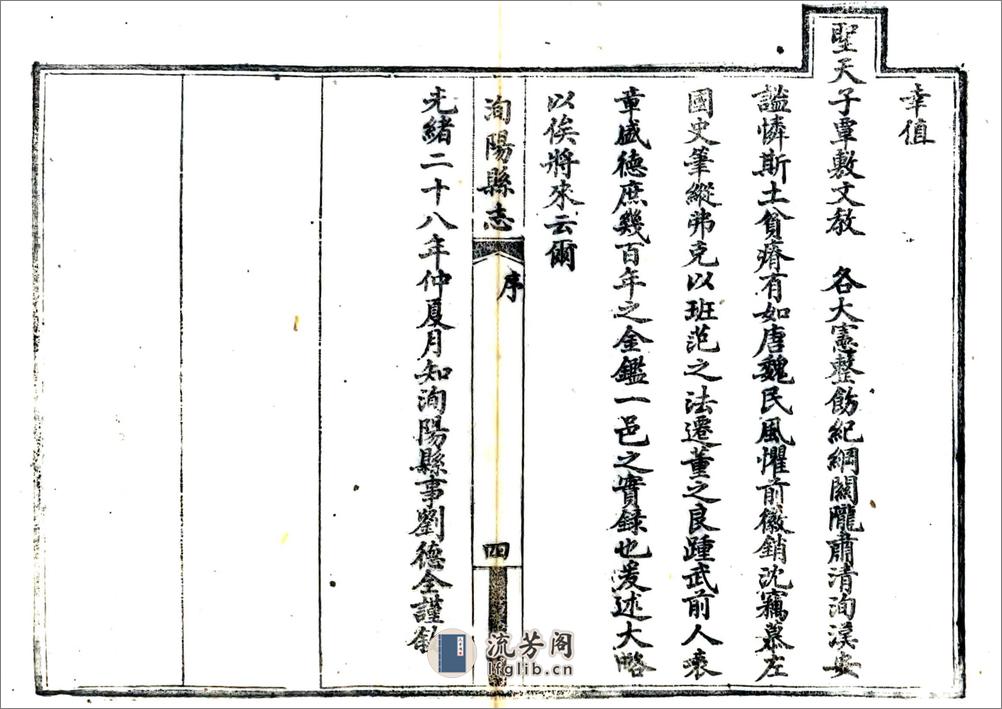 幸值
聖天子覃敷文敎　各大憲整飭紀綱關隴肅清洵漢安
謐憐斯土貧瘠有如唐魏民風懼前徽銷沈竊慕左
國史筆縱弗克以班范之法遷董之良踵武前人表
章盛德庶幾百年之金鑑一邑之實録也爰述大略
以俟將來云爾
洵陽縣志
序
四
光緒二十八年仲夏月知洵陽縣事劉德全謹
流芳阁
lfglib.cn